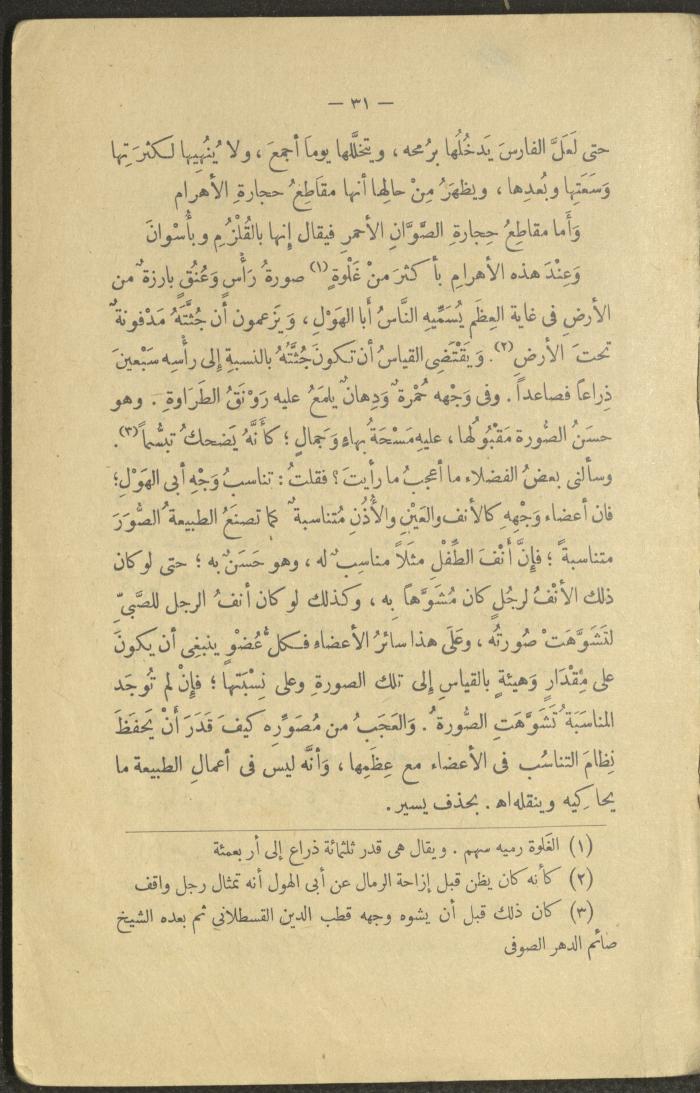 — ٣١ —
حتى لَعَلَّ الفارسَ يَدخُلُها برُمحه ، ويتخلَّلها يوماً أجمعَ ، ولا يُنْهِيها لكثرَتِها
وَسَعَتِها وبُعدِها ، ويظهَرُ مِنْ حالِها أنها مقَاطِعُ حجارةِ الأهرام
وَأَما مقاطِعُ حِجارةِ الصَّوَّانِ الأحمرِ فيقال إنها بالقُلْزُمِ وبأُسْوانَ
وَعِنْدَ هذه الأهرامِ بأكثرَ مَنْ غَلْوةٍ (١) صورةُ رَأْسٍ وَعُنُقٍ بارزةٌ من
الأرضِ فى غاية العِظَم يُسَمِّيهِ النَّاسُ أَبا الهَوْلِ ، وَيَزعمون أن جُثَّتَهُ مَدْفونةٌ
تحتَ الأرضِ (٢). وَيَقْتَضِى القياسُ أن تكونَ جُثَّتُهُ بالنسبةِ إلى رأْسِه سَبْعينَ
ذِراعاً فصاعداً . وفى وَجْهه حُمْرةٌ وَدِهانٌ يلمَعُ عليه رَوْنَقُ الطَرَاوةِ . وهو
حسَنُ الصُّورة مَقْبُولُها ، عليهِ مَسْحَةُ بهاءٍ وَجَمالٍ ؛ كأَنَّهُ يَضحكُ تبسُّماً (٣).
وسألنى بعضُ الفضلاء ما أعجبُ ما رأيتَ ؟ فقلتُ : تناسبُ وَجْهِ أبى الهَوْلِ ؛
فان أعضاء وَجْهِهِ كالأنف والعَيْنِ والأُذُنِ مُتناسبةٌ كما تصنَعُ الطبيعةُ الصُّوَرَ
متناسبةً ؛ فإِنَّ أَنْفَ الطِّفْلِ مثلاً مناسبٌ له ، وهو حَسَنٌ به ؛ حتى لو كان
ذلك الأنْفُ لرجُلٍ كان مُشَوَّهاً بِه ، وكذلك لو كان أنفُ الرجل للصَّبىِّ
لتَشَوَّهَتْ صُورتُه ، وعَلَى هذا سائرُ الأعضاء فكلُّ عُضْوٍ ينبغى أن يكونَ
على مِقْدَارٍ وَهيئةٍ بالقياسِ إلى تلك الصورةِ وعلى نِسْبَتها ؛ فإنْ لم تُوجَد
المناسَبَةُ تَشَوَّهَتِ الصُّورةُ . وَالعَجَبُ من مُصَوِّرِه كيفَ قَدَرَ أَنْ يَحفَظَ
نِظامَ التناسُب فى الأعضاء مع عِظَمِها ، وَأنَّه ليس فى أعمالِ الطبيعة ما
يحاكيه وينقله اهـ . بحذف يسير .
(١) الغَلوة رميه سهم . ويقال هى قدر ثلثمائة ذراع إلى أربعمئة
(٢) كأنه كان يظن قبل إزاحة الرمال عن أبى الهول أنه تمثال رجل واقف
(٣) كان ذلك قبل أن يشوه وجهه قطب الدين القسطلانى ثم بعده الشيخ
صائم الدهر الصوفى